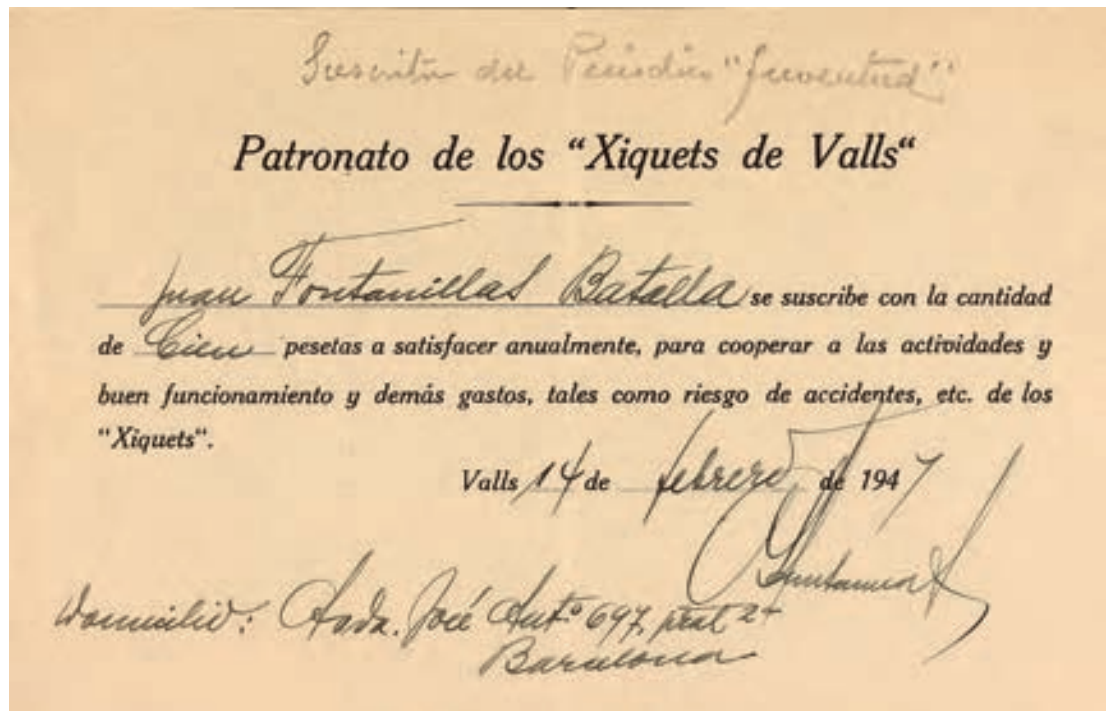 Suscritor del Periodico "Juventud"
Patronato de los “Xiquets de Valls“
Juan Fontanillas Batalla se suscribe con la cantidad
de Cien pesetas a satisfacer anualmente, para cooperar a las actividades y
buen funcionamiento y demás gastos, tales como riesgo de accidentes, etc. de los
“Xiquets“.
Valls 14 de febrero de 1947
Domicilio: Avda. José Antº 697, pral 2ª
Barcelona